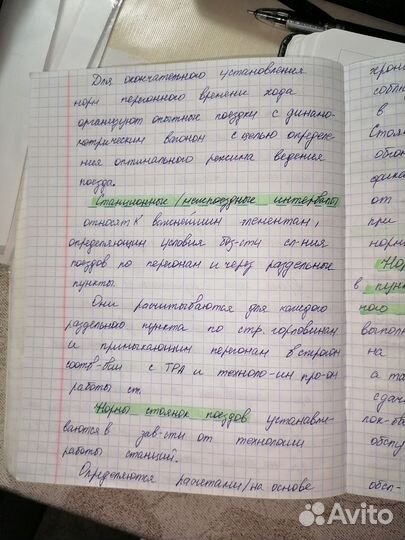 Для окончательного установления
норм перегонного времени хода
организуют опытные поездки с динамо-
метрическим вагоном с целью определе-
ния оптимального режима ведения
поезда.
Станционные/межпоездные интервалы
относят к важнейшим элементам,
определяющим условия без-сти сл-ния
поездов по перегонам и через раздельные
пункты.
Они рассчитываются для каждого
раздельного пункта по стр. горловинам
и примыкающим перегонам в строгом
соотв-вии с ТРА и техноло-им про-ом
работы ст.
Нормы стоянок поездов устанавли-
ваются в зав-сти от технологии
работы станций.
Определяются расчетами/на основе
хрон
соблю
в
Стоян
обгон
при
норми
Нор
в пунк
ного
выполн
на
а та
сдач
лок-бо
обслу
обсп-
Avito